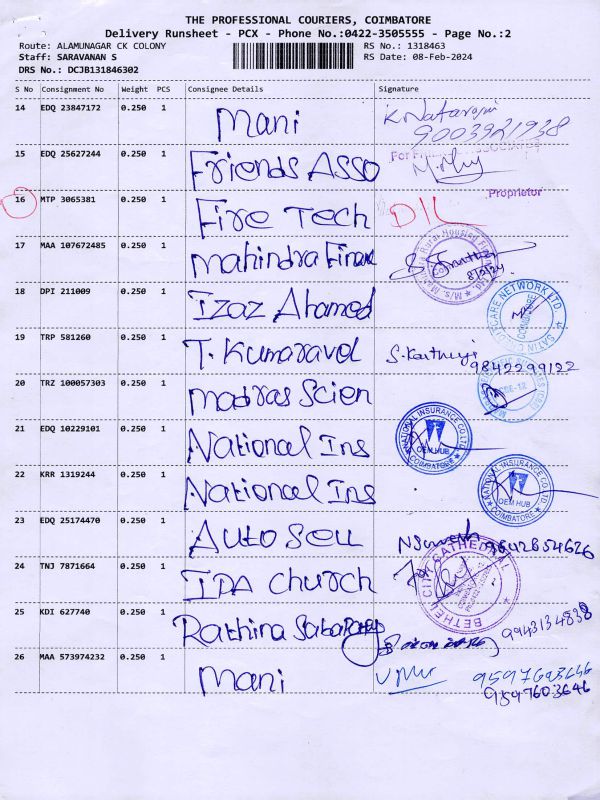 THE PROFESSIONAL COURIERS, COIMBATORE
Delivery Runsheet - PCX - Phone No.:0422-3505555 - Page No.:2
Route: ALAMUNAGAR CK COLONY
RS No.: 1318463
Staff: SARAVANAN S
RS Date: 08-Feb-2024
DRS No.: DCJB131846302
S No Consignment No Weight PCS Consignee Details Signature
14 EDQ 23847172 0.250 1 Mani K Natarajan
9003921938
15 EDQ 25627244 0.250 1 Friends Asso
Proprietor
16 MTP 3065381 0.250 1 Fire Tech D/L
17 MAA 107672485 0.250 1 Mahindra Finance
8/2/24
18 DPI 211009 0.250 1 Izaz Ahamed SATIN CREDITCARE NETWORK LTD.
19 TRP 581260 0.250 1 T. Kumaravel S. Kartheyi
9842299122
20 TRZ 100057303 0.250 1 Madras Scien CBE-12
21 EDQ 10229101 0.250 1 National Ins NATIONAL INSURANCE CO LTD. OEM HUB COIMBATORE
22 KRR 1319244 0.250 1 National Ins NATIONAL INSURANCE CO LTD. OEM HUB COIMBATORE
23 EDQ 25174470 0.250 1 Auto Sell 9842854626
24 TNJ 7871664 0.250 1 IPA Church BETHEL CITY CATHEDRAL
25 KDI 627740 0.250 1 Rathina Sabapathy 9943134838
26 MAA 573974232 0.250 1 Mani 9597603646
9597603646